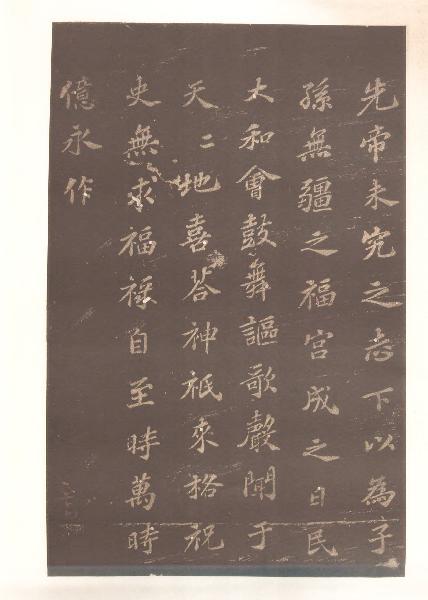 先帝未究之志下以為子
孫無疆之福宮成之日民
大和會鼓舞謳歌聲聞于
天二地喜荅神祇來格祝
史無求福祿自至時萬時
億永作